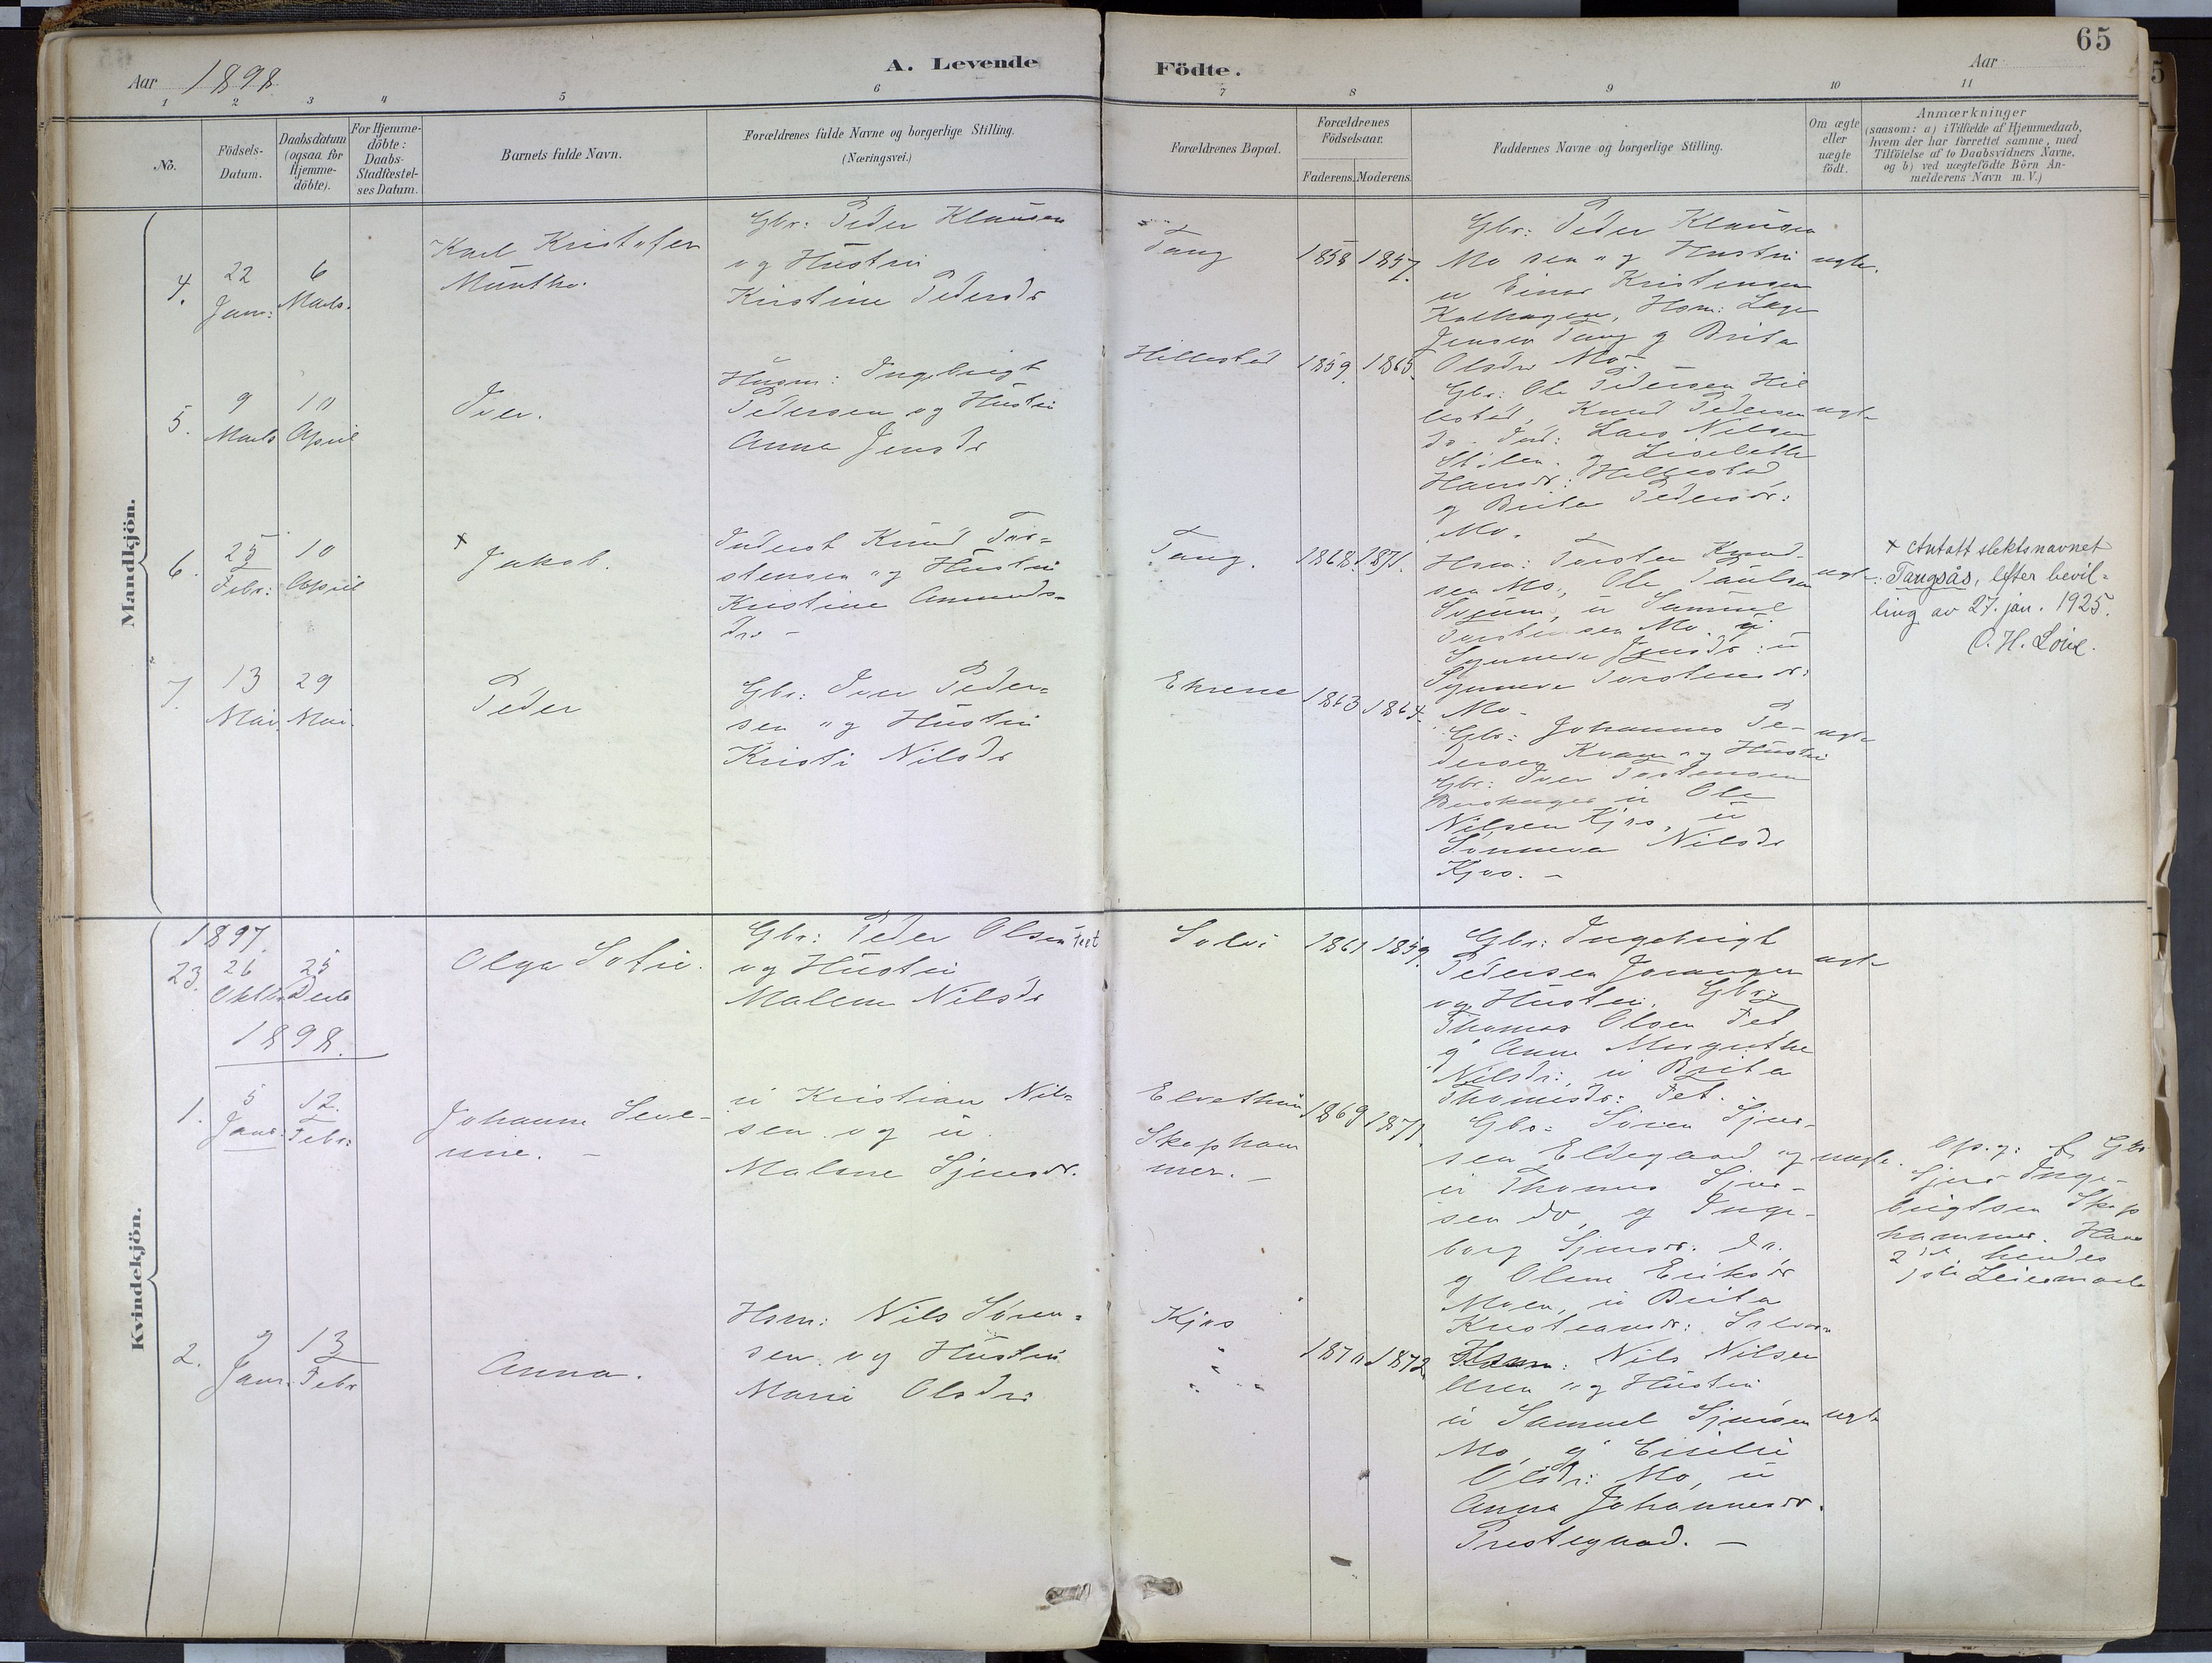 65
Aar 1898
A. Levende
Födte.
Aar
1 2 3 4 5 6 7 8 9 10 11
No.
Födsels-
Datum.
Daabsdatum
(ogsaa for
Hjemme-
döbte).
For Hjemme-
döbte:
Daabs-
Stadfæstel-
ses Datum.
Barnets fulde Navn.
Forældrenes fulde Navne og borgerlige Stilling.
(Næringsvei.)
Forældrenes Bopæl.
Forældrenes
Födselsaar.
Faderens.
Moderens.
Faddernes Navne og borgerlige Stilling.
Om ægte
eller
uægte
födt.
Anmærkninger
(saasom: a) i Tilfælde af Hjemmedaab,
hvem der har forrettet samme, med
Tilföielse af to Daabsvidners Navne,
og b) ved uægtefödte Börn An-
melderens Navn m. V.)
Mandkjön.
4.
22
Janr:
6
Marts.
Karl Kristofer
Munthe.
Gbr: Peder Klausen
og Hustru
Kristine Pedersdr
Tang
1858
1857.
Gbr: Peder Klausen
Mo sen og Hustru
u Einar Kristensen
Kalhagen, Hsm: Lage
Jensen Tang g Brita
Olsdr Mo
ægte.
5.
9
Marts
10
April
Iver.
Husm: Ingebrigt
Pedersen og Hustru
Anna Jensdr
Hillestad
1859.
1865.
Gbr: Ole Pedersen Hil
lestad, Knud Pedersen
do. Ind: Lars Nilsen
Stølen. g Lisebeth
Hansdr: Hillestad
g Brita Pedersdr:
Mo.
ægte
6.
25
Febr:
10
April
x
Jakob.
Inderst Knud Tor=
stensen og Hustru
Kristine Amunds-
dr. -
Tang.
1868.
1871.
Hsm: Torsten Knud-
sen Mo, Ole Paulsen
Sveum, u Samuel
Torstensen Mo g
Synneve Jensdr: u
Synneve Torstensdr:
Mo -
ægte.
x Antatt slektsnavnet
Tangsås, efter bevil=
ling av 27. jan. 1925.
O. H. Loixe.
7.
13
Mai
29
Mai.
Peder
Gbr: Iver Peder=
sen og Hustru
Kristi Nilsdr
Ehrene
1863
1864.
Gbr: Johannes Pe-
dersen Kvam og Hustru
Gbr: Iver Torstensen
u Ole
Nilsen Kjøs, u
Sønneva Nilsdr
Kjøs. -
ægte
Kvindekjön.
1897.
23.
26
Oktbr
25
Decbr
Olga Sofie.
Gbr: Peder Olsen Fet
og Hustru
Malene Nilsdr
Solvi
1861
1859.
Gbr: Ingebrigt
Pedersen Joranger
og Hustru, Gbr:
Thomas Olsen Fet
g Anne Margrethe
Nilsdr:, u Brita
Thomasdr: Fet.
ægte
1898.
1.
5
Janr:
12.
Febr:
Johanne Seve-
rine. -
u Kristian Nil=
sen og u
Malene Sjursdr.
Elvethun
Skapham
mer. -
1869
1871.
Gbr: Søren Sjur-
sen Eldegaard og
u Thomas Sjur-
sen do, g Inge-
borg Sjursdr. do.
g Olene Eriksdr
Moen, u Brita
Kristiansdr:
uægte.
Opg: f. Gbr
Sjur Inge-
brigtsen Skap
hammer. Hans
2det hendes
1ste Leiermaal
2.
9
Janr.
13
Febr
Anna.
Hsm: Nils Søren=
sen og Hustru
Mari Olsdr:
Kjøs
1870
1872
Hsm: Nils Nilsen
Uren og Hustru
u Samuel Sjursen
Mo, g Cecilie
Olsdr: Mo, u
Anna Johannesdr.
Prestegaard. -
ægte